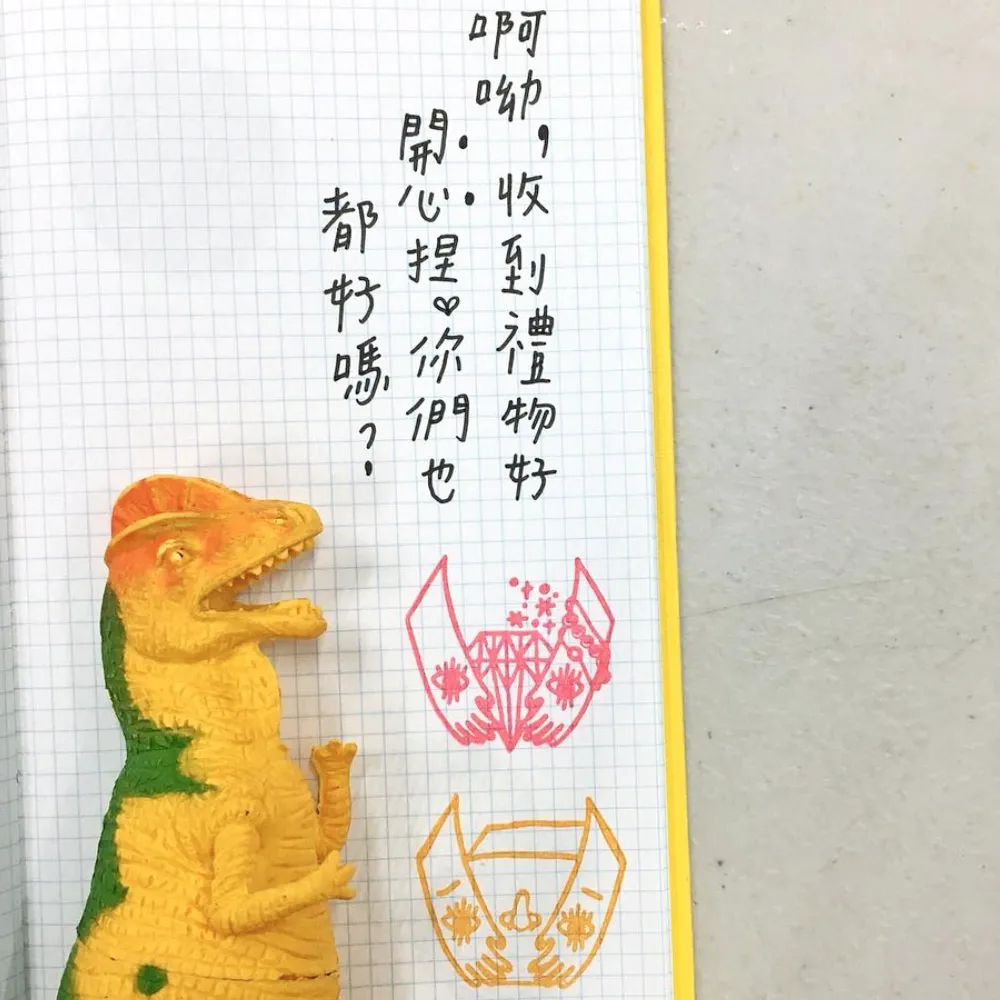 啊呦，收到禮物好
開心捏♡你們也
都好嗎？